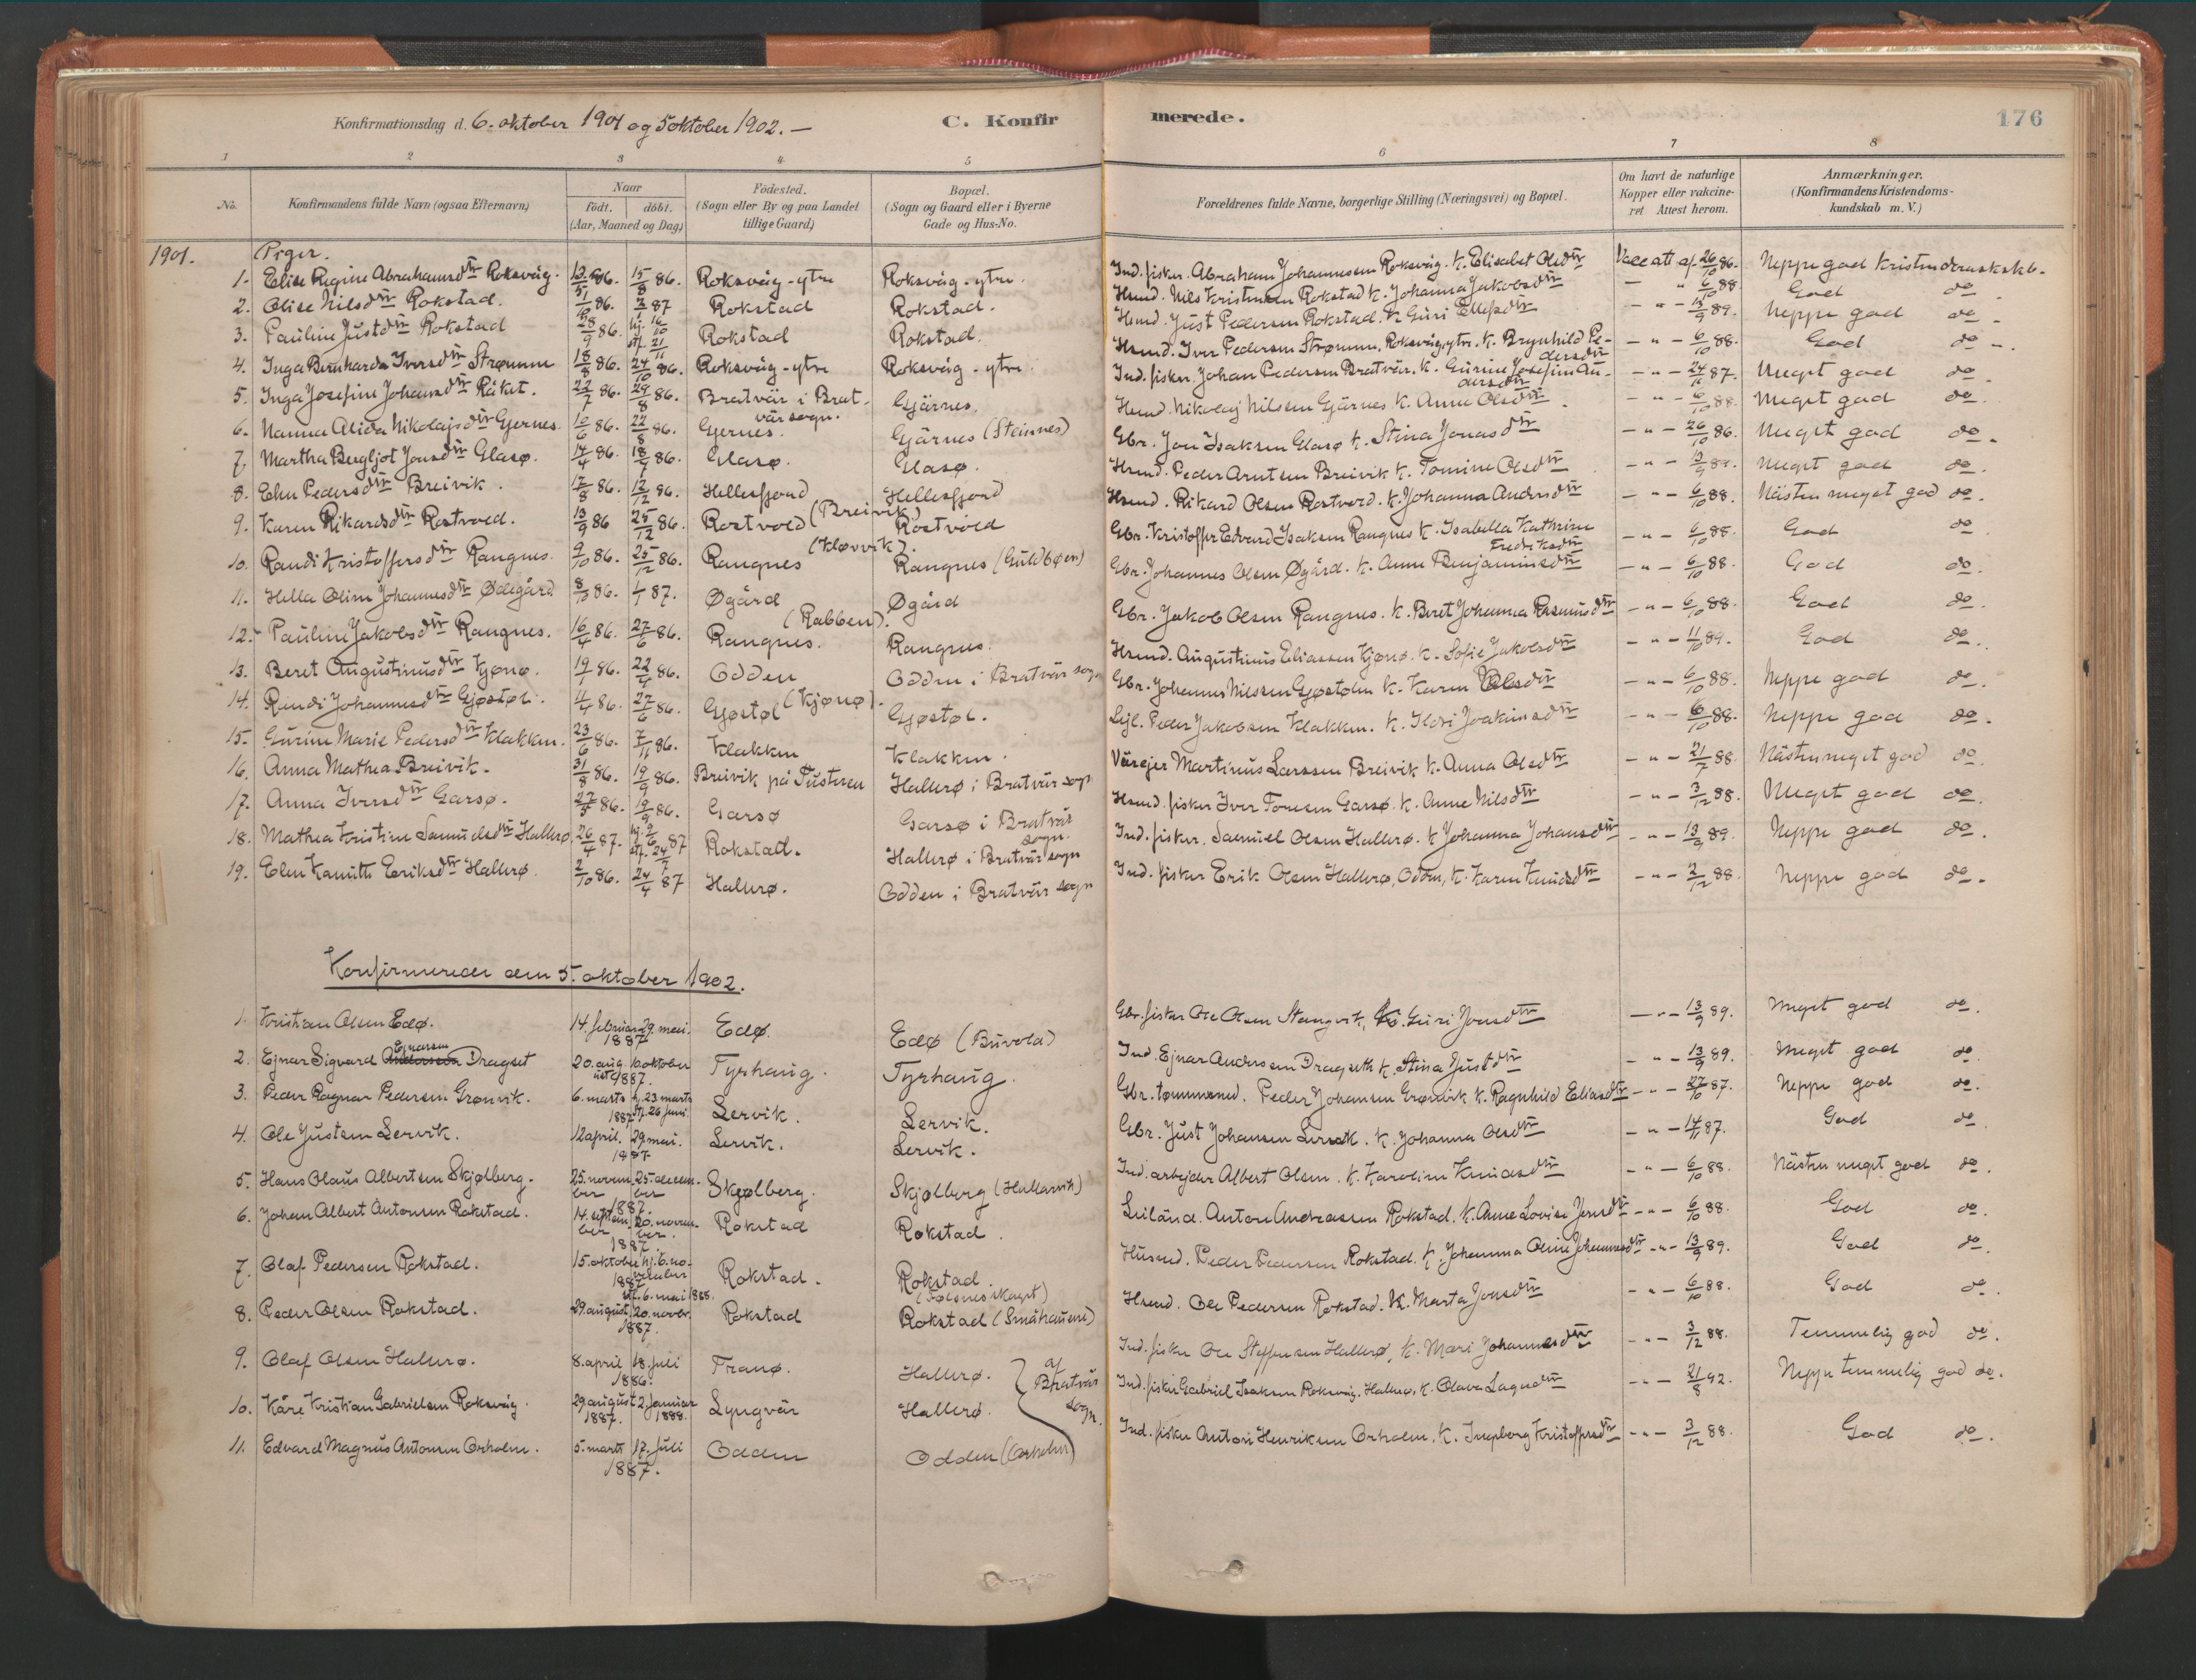 Konfirmationsdag d. 6. oktober 1901 og 5 oktober 1902. —
C. Konfirmerede.
176
1 2 3 4 5 6 7 8
No.
Konfirmandens fulde Navn (ogsaa Efternavn)
Naar
født. døbt.
(Aar, Maaned og Dag)
Fødested.
(Sogn eller By og paa Landet
tillige Gaard)
Bopæl.
(Sogn og Gaard eller i Byerne
Gade og Hus-No.
Forældrenes fulde Navne, borgerlige Stilling (Næringsvei) og Bopæl.
Om havt de naturlige
Kopper eller vakcine-
ret Attest herom.
Anmærkninger.
(Konfirmandens Kristendoms-
kundskab m. V.)
1901. Piger.
1. Elise Regine Abrahamsdtr Roksvåg. 86. 15/8 86. Roksvåg-ytre Roksvåg-ytre. Ind. fisker Abraham Johannessen Roksvåg. k. Elisabet Olsdtr Vacc att af 26/10 86. Neppe god kristendomskskb.
2. Olise Nilsdtr Rokstad. 86. 87 Rokstad Rokstad. Hsmd. Nils Kristensen Rokstad k. Johanna Jakobsdtr — " 6/10 88 God do
3. Pauline Justdtr Rokstad 28/9 86. hj. 16/10 stf. 21/11 Rokstad Rokstad. Hsmd. Just Pedersen Rokstad. k. Guri Ellefsdtr — " — 13/9 89. Neppe god do
4. Inga Bernharda Iversdtr Strømme 18/8 86. 24/10 86. Roksvåg-ytre Roksvåg-ytre. Hsmd. Iver Pedersen Strømme, Roksvåg ytr. k. Brynhild Pe-
dersdtr — " — 6/10 88. God do
5. Inga Josefine Johansdtr Råket. 22/7 86. 29/8 86. Bratvär i Brat-
vär sogn. Gjärnes. Ind. fisker Johan Pedersen Bratvär. k. Gurine Josefine An-
dersdtr — " — 24/11 87. Meget god do
6. Nanna Alida Nikolajsdtr Gjernes. 10/6 86. 22/8 86. Gjernes. Gjärnes (Steinnes) Hsmd. Nikolaj Nilssen Gjärnes k. Anne Olsdtr — " — 6/10 88. Meget god do.
7. Martha Bergljot Jonsdtr Glasø. 14/4 86. 18/7 86. Glasø. Glasø. Gbr. Jon Isaksen Glasø k. Stina Jonasdtr — " — 26/10 86. Meget god do.
8. Elen Pedersdtr Breivik. 17/8 86. 12/12 86. Hellesfjord (Breivik) Hellesfjord Hsmd. Peder Arntsen Breivik k. Tomine Olsdtr — " — 13/9 89. Meget god do.
9. Karen Rikardsdtr Rostvold. 13/9 86 25/12 86. Rostvold (Kløvvik). Rostvold Hsmd. Rikard Olsen Rostvold. k. Johanna Andersdtr — " — 6/10 88. Nästen meget god do.
10. Randi Kristoffersdtr Rangnes. 9/10 86. 25/12 86. Rangnes Rangnes (Guldbøen) Gbr. Kristoffer Edvard Isaksen Rangnes k. Isabella Kathrine
Fredriksdtr — " — 6/10 88. God do
11. Hella Oline Johannesdtr Ødegård 8/10 86. 87. Øgård Øgård Gbr. Johannes Olsen Øgård. k. Anne Benjaminsdtr — " — 6/10 88. God do.
12. Pauline Jakobsdtr Rangnes. 16/4 86. 27/6 86. Rangnes. (Rabben). Rangnes. Gbr. Jakob Olsen Rangnes. k. Beret Johanna Rasmusdtr — " — 6/10 88. God do.
13. Beret Augustinusdtr Kjønø. 19/1 86. 22/4 86. Odden (Kjønø). Odden i Bratvär sogn Hsmd. Augustinus Eliassen Kjønø. k. Sofie Jakobsdtr — " — 11/10 89. God do.
14. Randi Johannesdtr Gjøstøl. 4/4 86. 27/6 86. Gjøstøl Gjøstøl. Gbr. Johannes Nilssen Gjøstølen k. Karen Olsdtr — " — 6/10 88. Neppe god do.
15. Gurine Marie Pedersdtr Klakken. 23/6 86. 7/11 86. Klakken Klakken. Lejl. Peder Jakobsen Klakken. k. Ildri Joakimsdtr — " — 6/10 88. Neppe god do.
16. Anna Mathea Breivik. 31/8 86. 19/9 86. Breivik på Tusteren Hallerø i Bratvär sogn Värejer Martinus Larssen Breivik k. Anna Olsdtr — " — 21/7 88. Nästen meget god do.
17. Anna Iversdtr Garsø. 27/5 86. 19/9 86. Garsø Garsø i Bratvär
sogn. Hsmd. fisker Iver Toresen Garsø. k. Anne Nilsdtr — " — 3/12 88. Meget god do.
18. Mathea Kristine Samuelsdtr Hallerø. 26/4 87. hj. 2/6 87 stf. 24/7 Rokstad. Hallerø i Bratvär sogn Ind. fisker. Samuel Olsen Hallerø. k Johanna Johansdtr — " — 13/9 89. Neppe god do.
19. Elen Kanutte Eriksdtr Hallerø. 2/10 86. 24/4 87 Hallerø. Odden i Bratvär sogn Ind. fisker Erik Olsen Hallerø, Odden, k. Karen Knudsdtr — " — 3/12 88. Neppe god do.
Konfirmerede den 5. oktober 1902.
1. Kristian Olsen Edø. 14. februar 29. mai. 1887 Edø. Edø (Buvold) Gbr. fisker Ole Olsen Stangvik, k. Guri Jonsdtr — " — 13/9 89. Meget god do
2. Ejnar Sigvard Ejnarsen Dragset 20. aug. 10. oktober 1887. Tyrhaug. Tyrhaug. Ind. Ejnar Anderssen Dragseth k. Stina Justdtr — " — 13/9 89. Meget god do.
3. Peder Ragnar Pedersen Grønvik. 6. marts hj. 23 marts 1887 stf. 26 juni Lervik. Lervik. Gbr. tømmermd. Peder Johansen Grønvik k. Ragnhild Eliasdtr — " — 27/10 87. Neppe god do.
4. Ole Justsen Lervik. 12 april. 29. mai. 1887 Lervik. Lervik. Gbr. Just Johansen Lervik. k. Johanna Olsdtr — " — 14/11 87. God do.
5. Hans Olaus Albertsen Skjølberg. 25. novem-
ber 25. decem-
ber 1887. Skjølberg. Skjølberg (Hallarvik) Ind. arbejder Albert Olsen. k. Karoline Knudsdtr — " — 6/10 88. Nästen meget god do.
6. Johan Albert Antonsen Rokstad. 14. septem-
ber 20. novem-
ber. 1887. Rokstad Rokstad. Leiländ. Anton Andreassen Rokstad. k. Anne Lovise Jensdtr — " — 6/10 88. God do.
7. Olaf Pedersen Rokstad. 15. oktober hj. 6. no-
vember 1887 stf. 6. mai 1888. Rokstad. Rokstad.
Husmd. Peder Pedersen Rokstad. k. Johanna Oline Johannesdtr — " — 13/9 89. God do.
8. Peder Olsen Rokstad. 29. august 20. novbr. 1887. Rokstad Rokstad (Småhaugene) Hsmd. Ole Pedersen Rokstad. k. Marta Jonsdtr — " — 6/10 88. God do.
9. Olaf Olsen Hallerø. 8. april 18. juli 1886. Tranø. Hallerø. Ind. fisker Ole Steffensen Hallerø, k. Mari Johannesdtr — " — 3/12 88. Temmelig god do.
af
Bratvär
sogn.
10. Kåre Kristian Gabrielsen Roksvåg. 29. august 1887. 2. januar 1888. Lyngvär Hallerø. Ind. fisker Gabriel Isaksen Roksvåg. Hallerø, k. Olava Lagesdtr — " — 21/8 92. Neppe temmelig god do.
11. Edvard Magnus Antonsen Orholm. 5. marts 17. juli 1887. Odden Odden (Orholm) Ind. fisker Anton Henriksen Orholm. k. Ingeborg Kristoffersdtr — " — 3/12 88. God do.